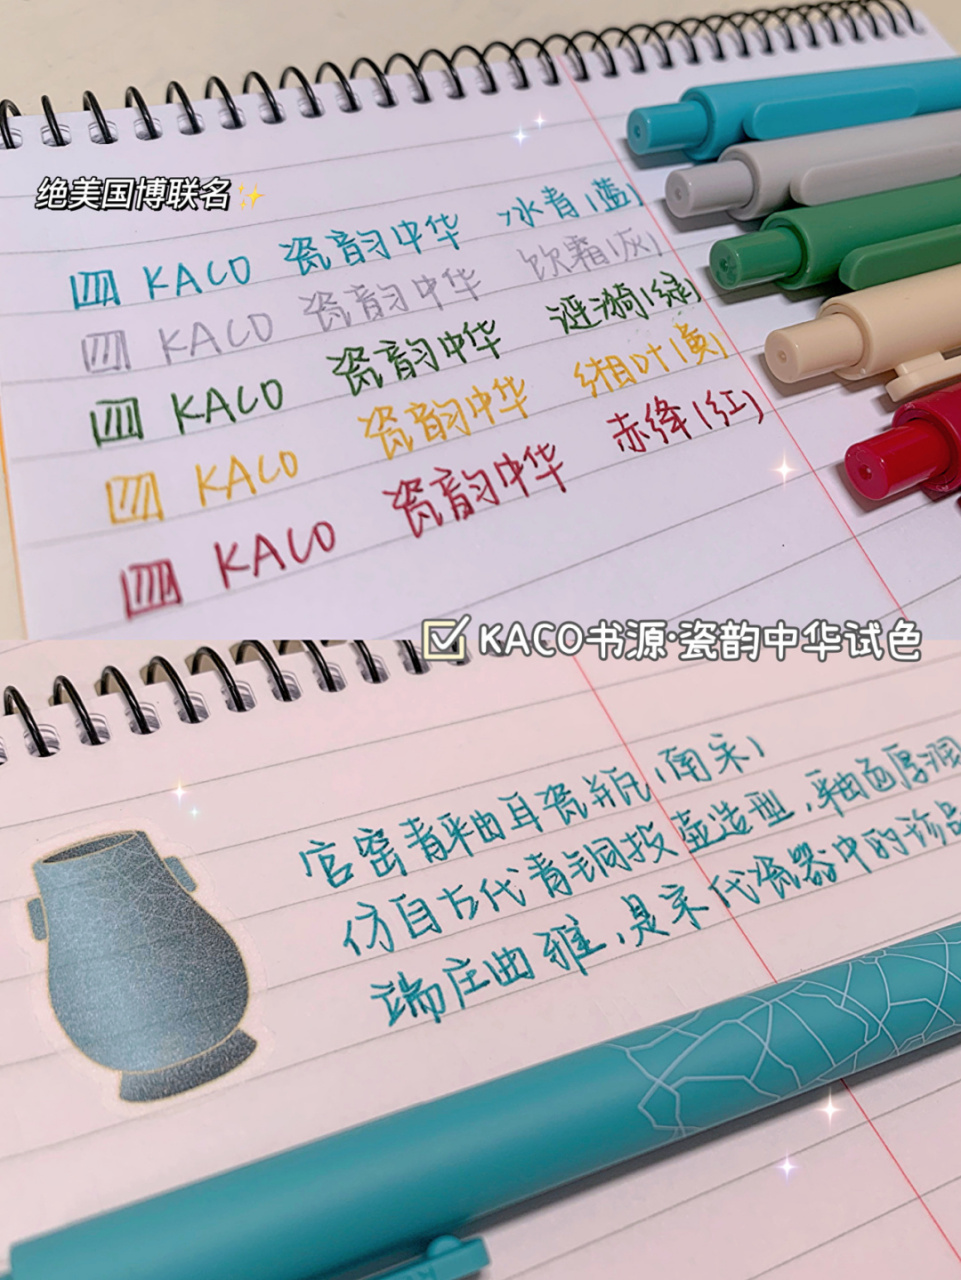 绝美国博联名✨
KACO 瓷韵中华 冰青(蓝)
KACO 瓷韵中华 饮霜(灰)
KACO 瓷韵中华 涟漪(绿)
KACO 瓷韵中华 缃叶(黄)
KACO 瓷韵中华 赤绛(红)
KACO书源·瓷韵中华试色
官窑青釉贯耳瓷瓶(南宋)
仿自古代青铜投壶造型,釉色厚润
端庄典雅,是宋代瓷器中的珍品